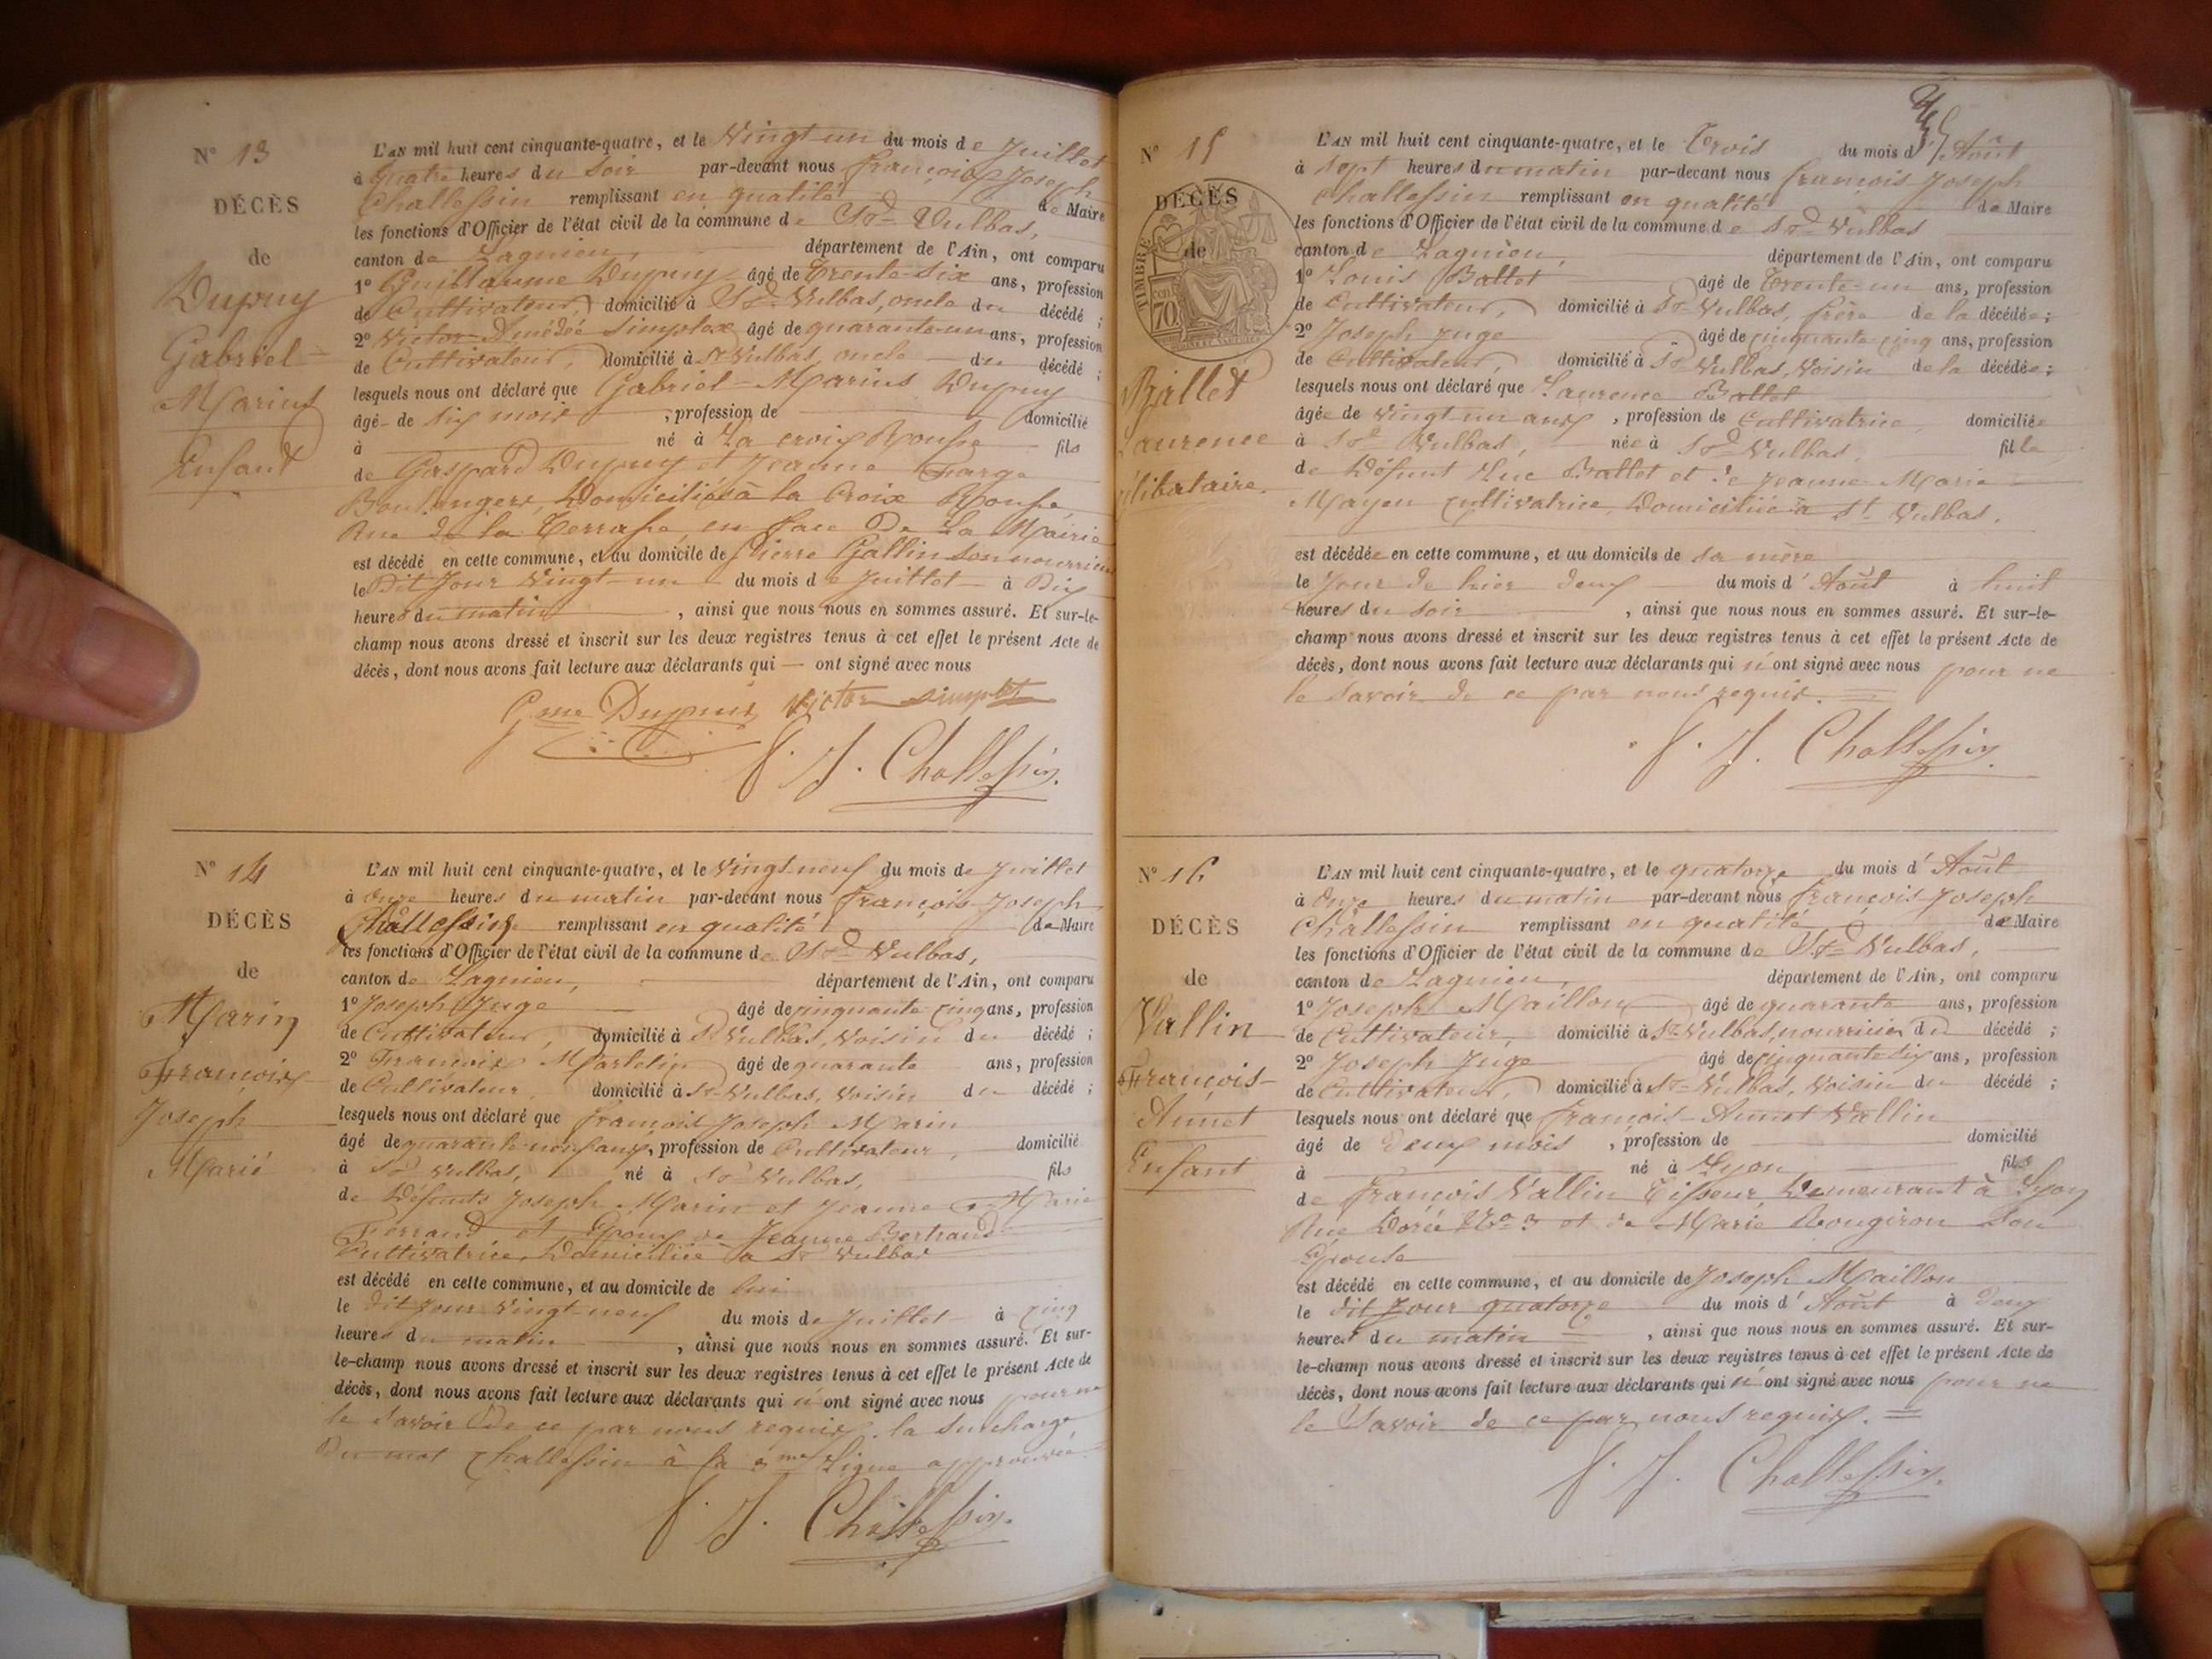 N° 13
DÉCÈS
de
Dupuy
Gabriel-
Marius
Enfant
L'AN mil huit cent cinquante-quatre, et le Vingt un du mois de Juillet
à quatre heures du soir par-devant nous françois Joseph
Challessin remplissant en qualité de Maire
les fonctions d'Officier de l'état civil de la commune de St Vulbas,
canton de Lagnieu, département de l'Ain, ont comparu
1° Guillaume Dupuy âgé de trente-six ans, profession
de Cultivateur, domicilié à St Vulbas, oncle du décédé ;
2° Victor Amédée Simplex âgé de quarante-un ans, profession
de Cultivateur, domicilié à St Vulbas, oncle du décédé ;
lesquels nous ont déclaré que Gabriel-Marius Dupuy
âgé de six mois , profession de domicilié
à né à La croix Rousse fils
de Gaspard Dupuy et Jeanne Farge
Boulangers, Domiciliés à la Croix Rousse
Rue de la Terrasse, en face De La Mairie
est décédé en cette commune, et au domicile de pierre Gallin son nourricier
le Dit Jour Vingt-un du mois de Juillet à Dix
heures du matin , ainsi que nous nous en sommes assuré. Et sur-le-
champ nous avons dressé et inscrit sur les deux registres tenus à cet effet le présent Acte de
décès, dont nous avons fait lecture aux déclarants qui — ont signé avec nous
Gme Dupuis Victor simplet
f. J. Challessin.
N° 14
DÉCÈS
de
Marin
François
Joseph
Marié
L'AN mil huit cent cinquante-quatre, et le Vingt neuf du mois de Juillet
à Onze heures du matin par-devant nous françois-Joseph
Challessin remplissant en qualité de Maire
les fonctions d'Officier de l'état civil de la commune de St Vulbas,
canton de Lagnieu, département de l'Ain, ont comparu
1° Joseph Juge âgé de cinquante cinq ans, profession
de Cultivateur, domicilié à St Vulbas, Voisin du décédé ;
2° François Martelin âgé de quarante ans, profession
de Cultivateur, domicilié à St Vulbas, Voisin du décédé ;
lesquels nous ont déclaré que françois Joseph Marin
âgé de quarante-neuf ans, profession de Cultivateur, domicilié
à St Vulbas, né à St Vulbas, fils
de Défunts Joseph Marin et Jeanne-Marie
Ferrand et Epoux de Jeanne Bertrand
Cultivatrice, Domiciliée à St Vulbas
est décédé en cette commune, et au domicile de lui
le dit Jour Vingt neuf du mois de Juillet à cinq
heures du matin , ainsi que nous nous en sommes assuré. Et sur-
le-champ nous avons dressé et inscrit sur les deux registres tenus à cet effet le présent Acte de
décès, dont nous avons fait lecture aux déclarants qui n'ont signé avec nous pour ne
le Savoir De ce par nous requis. la Surcharge
Du mot Challessin à la 3me Ligne approuvée
f. J. Challessin.
N° 15
DÉCÈS
de
TIMBRE
70
Ballet
Laurence
Célibataire.
L'AN mil huit cent cinquante-quatre, et le Trois du mois d' Août
à sept heures du matin par-devant nous françois Joseph
Challessin remplissant en qualité de Maire
les fonctions d'Officier de l'état civil de la commune de St Vulbas
canton de Lagnieu, département de l'Ain, ont comparu
1° Louis Ballet âgé de Trente-un ans, profession
de Cultivateur, domicilié à St Vulbas, frère de la décédée ;
2° Joseph Juge âgé de cinquante-cinq ans, profession
de Cultivateur, domicilié à St Vulbas, Voisin de la décédée ;
lesquels nous ont déclaré que Laurence Ballet
âgée de Vingt-un ans , profession de Cultivatrice, domiciliée
à St Vulbas, née à St Vulbas, fille
de Défunt Luc Ballet et de Jeanne Marie
Mayeu Cultivatrice, Domiciliée à St Vulbas.
est décédée en cette commune, et au domicile de sa mère
le Jour de hier deux du mois d' Août à huit
heures du soir , ainsi que nous nous en sommes assuré. Et sur-le-
champ nous avons dressé et inscrit sur les deux registres tenus à cet effet le présent Acte de
décès, dont nous avons fait lecture aux déclarants qui n'ont signé avec nous pour ne
le Savoir de ce par nous requis.
f. J. Challessin.
N° 16
DÉCÈS
de
Vallin
François-
Annet
Enfant
L'AN mil huit cent cinquante-quatre, et le quatorze du mois d' Août
à Onze heures du matin par-devant nous françois-Joseph
Challessin remplissant en qualité de Maire
les fonctions d'Officier de l'état civil de la commune de St Vulbas,
canton de Lagnieu, département de l'Ain, ont comparu
1° Joseph Maillon âgé de quarante ans, profession
de Cultivateur, domicilié à St Vulbas, nourricier du décédé ;
2° Joseph Juge âgé de cinquante six ans, profession
de Cultivateur, domicilié à St Vulbas, Voisin du décédé ;
lesquels nous ont déclaré que françois-Annet Vallin
âgé de deux mois , profession de domicilié
à né à Lyon fils
de françois Vallin Tisseur Demeurant à Lyon
Rue Dorée No 3 et de Marie Bougiron Son
Epouse
est décédé en cette commune, et au domicile de Joseph Maillon
le dit Jour quatorze du mois d' Août à Deux
heures du matin , ainsi que nous nous en sommes assuré. Et sur-
le-champ nous avons dressé et inscrit sur les deux registres tenus à cet effet le présent Acte de
décès, dont nous avons fait lecture aux déclarants qui n'ont signé avec nous pour ne
le Savoir de ce par nous requis.
f. J. Challessin.